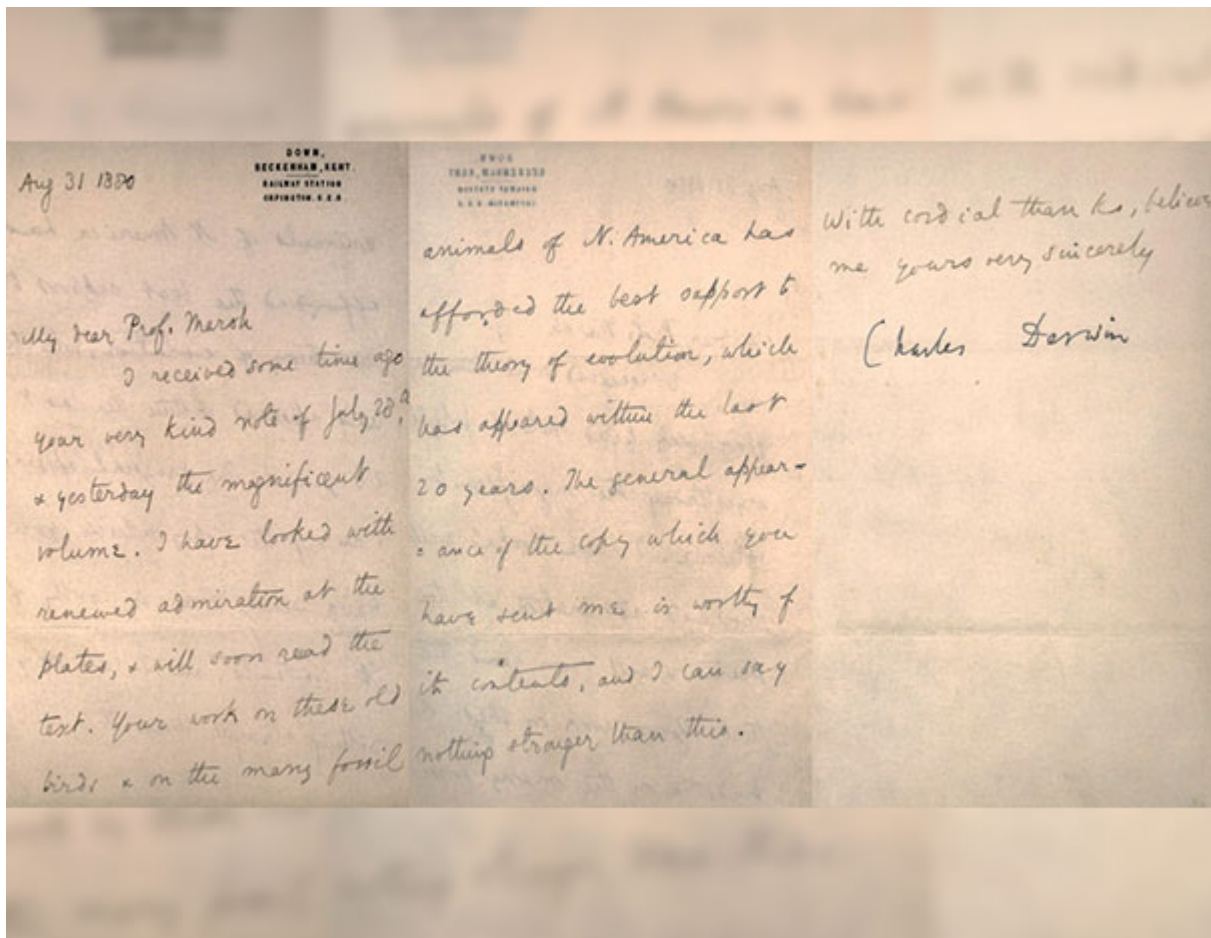 Aug 31 1880
DOWN,
BECKENHAM, KENT.
RAILWAY STATION
ORPINGTON. S.E.R.
My dear Prof. Marsh
I received some time ago
your very kind note of July 28,
& yesterday the magnificent
volume. I have looked with
renewed admiration at the
plates, & will soon read the
text. Your work on these old
birds & on the many fossil
animals of N. America has
afforded the best support to
the theory of evolution, which
has appeared within the last
20 years. The general appear-
=ance of the copy which you
have sent me is worthy of
its contents, and I can say
nothing stronger than this.
With cordial thanks, believe
me yours very sincerely
Charles Darwin